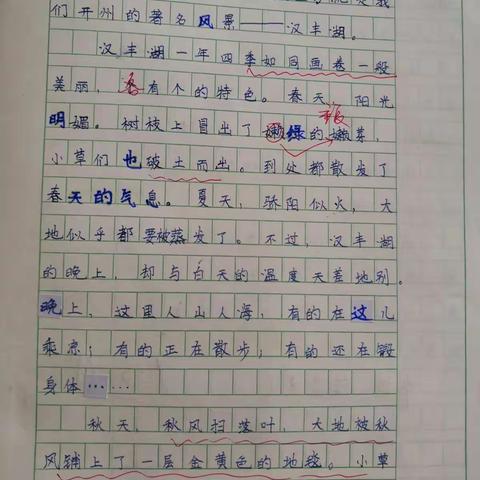 们开州的著名风景——汉丰湖。
汉丰湖一年四季如同画卷一般
美丽，各有个的特色。春天，阳光
明媚。树枝上冒出了嫩绿的嫩芽，
小草们也破土而出。到处都散发了
春天的气息。夏天，骄阳似火，大
地似乎都要被蒸发了。不过，汉丰湖
的晚上，却与白天的温度天差地别。
晚上，这里人山人海，有的在这儿
乘凉；有的正在散步；有的还在锻
身体……
秋天，秋风扫落叶，大地被秋
风铺上了一层金黄色的地毯。小草